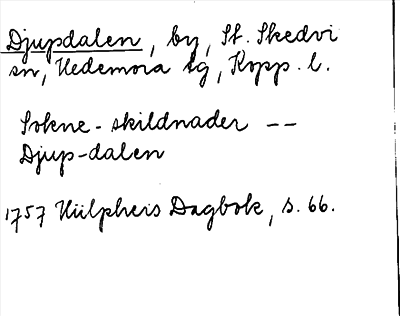 Djupdalen, by, St. Skedvi
sn, Hedemora tg, Kopp. l.
Sokne-skildnader --
Djup-dalen
1757 Hülphers Dagbok, s. 66.